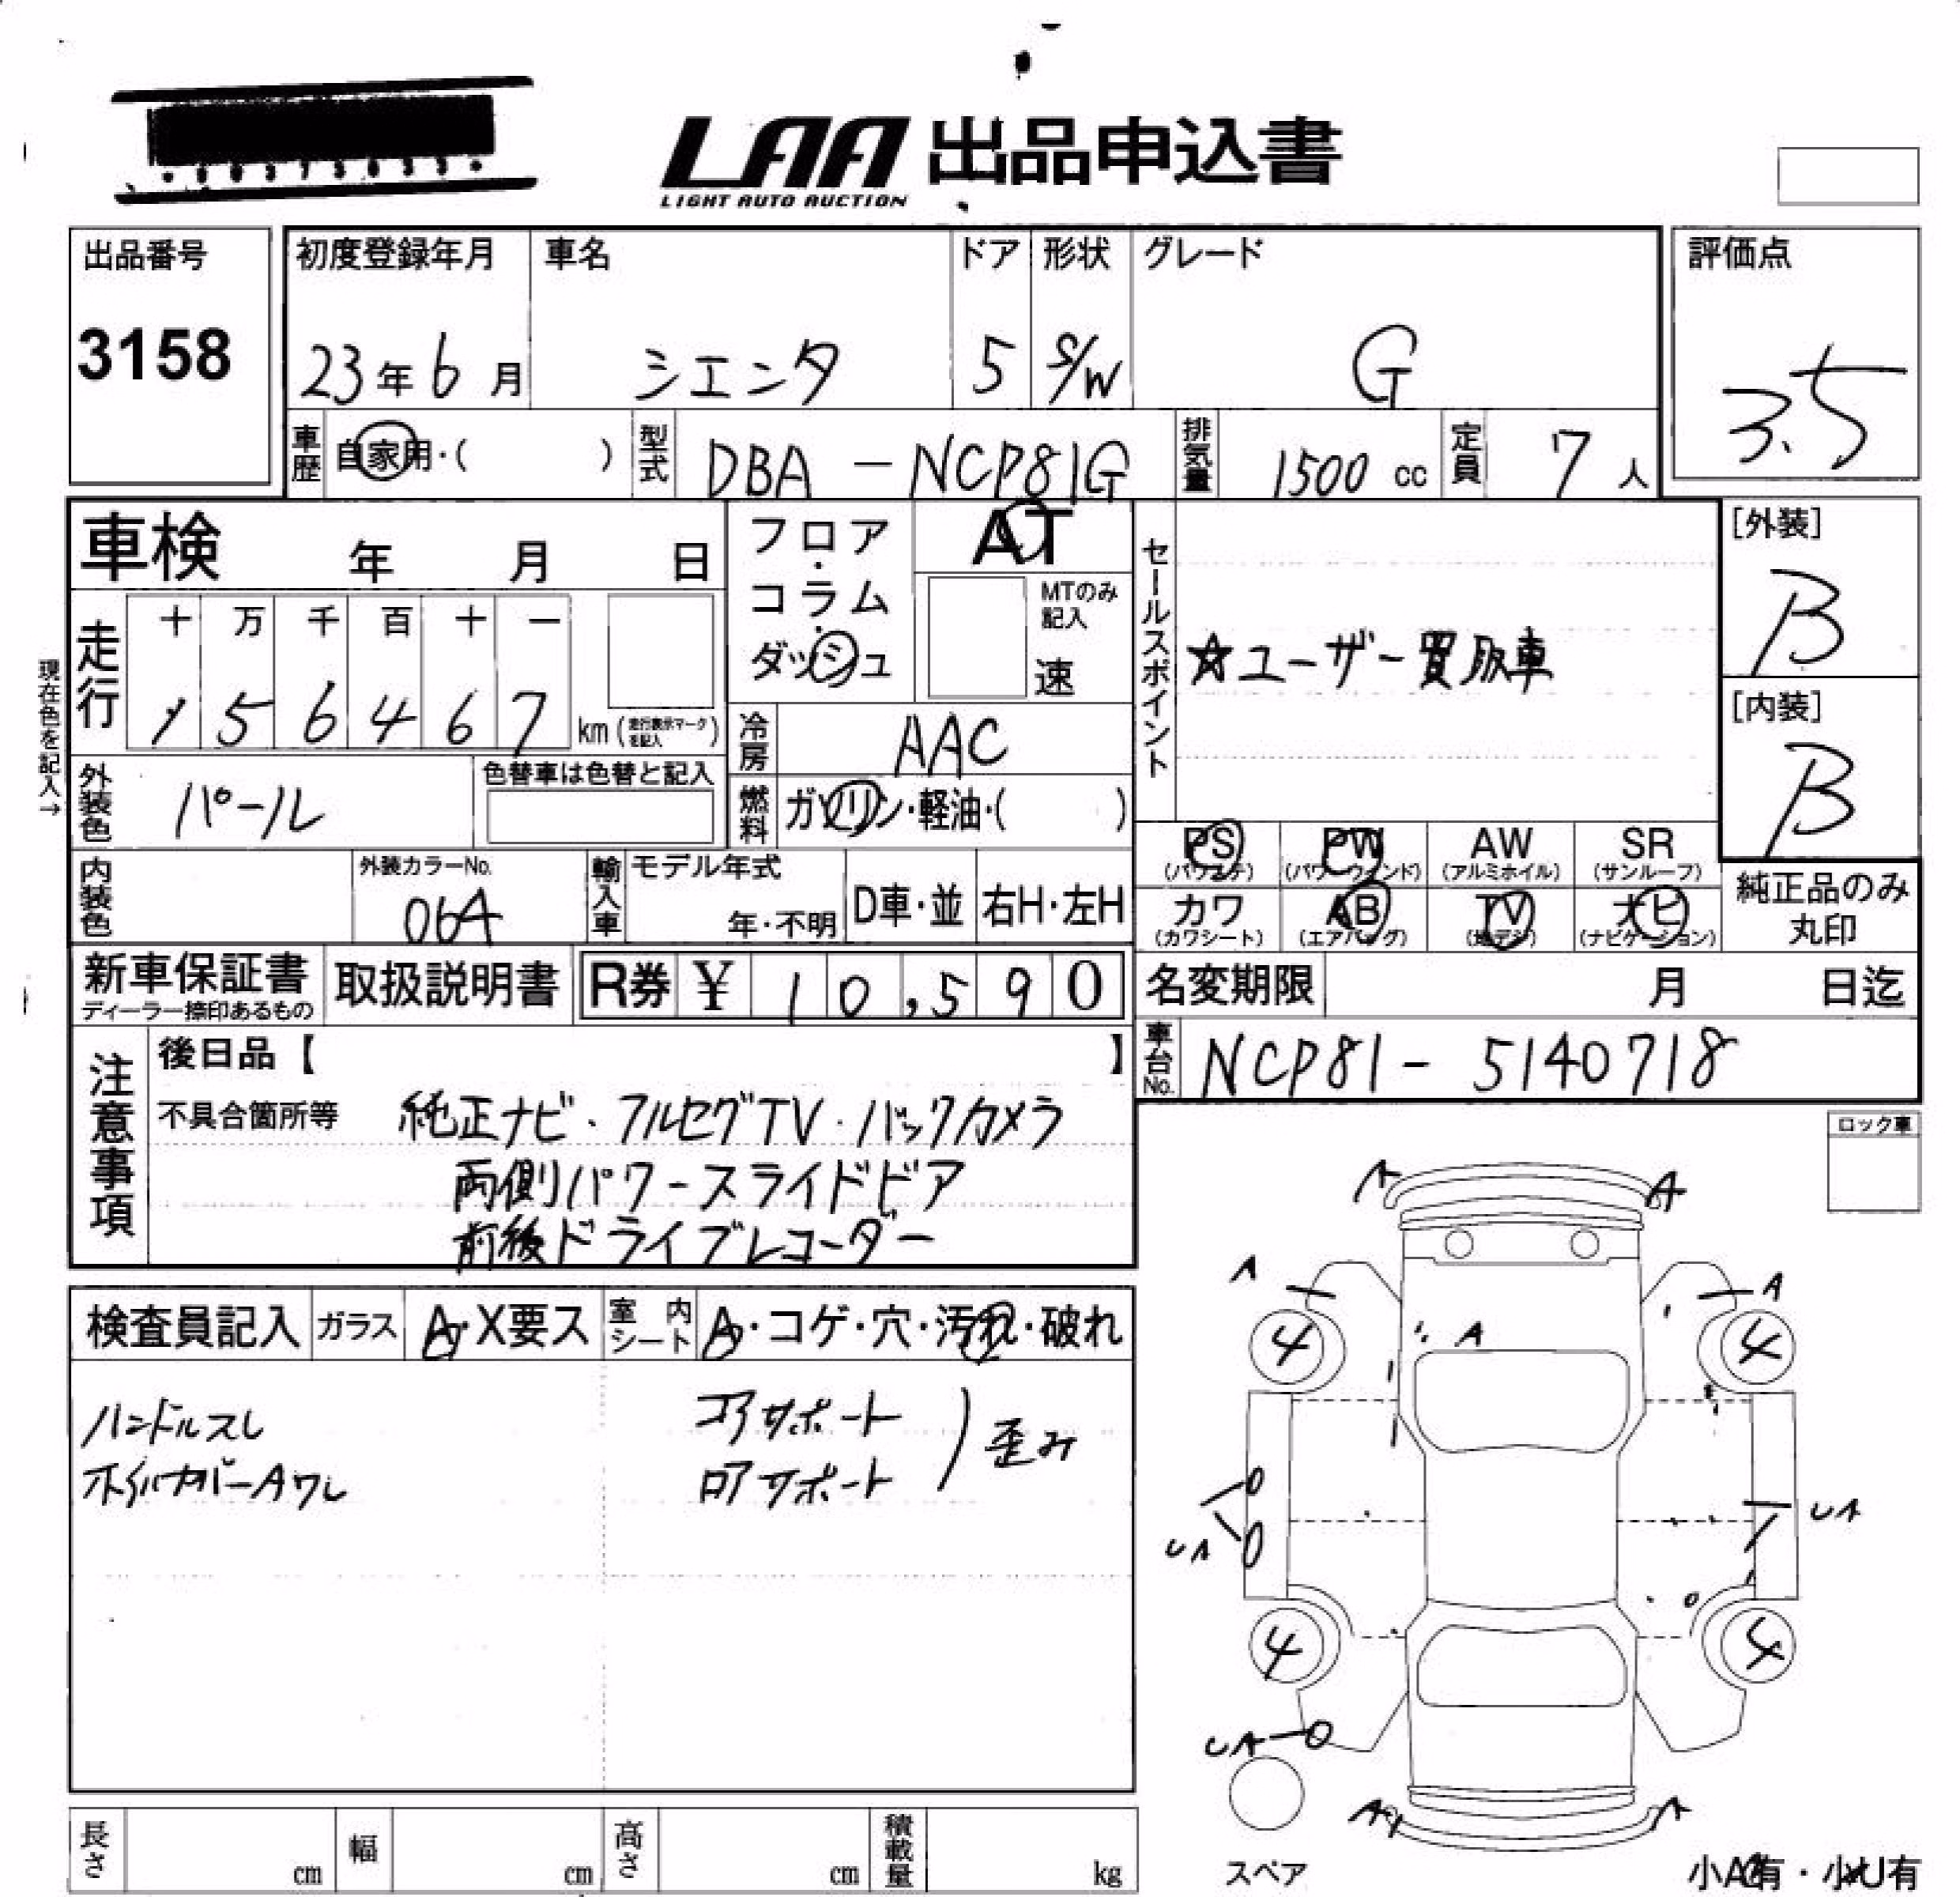 LAA 出品申込書
LIGHT AUTO AUCTION
出品番号
3158
初度登録年月
23年6月
車名
シエンタ
ドア
5
形状
S/W
グレード
G
評価点
3.5
車歴
自家用・( )
型式
DBA - NCP81G
排気量
1500 cc
定員
7人
車検 年 月 日
フロア・コラム・ダッシュ
AT
MTのみ記入
速
セールスポイント
☆ユーザー買取車
[外装]
B
[内装]
B
現在色を記入→
走行
十 万 千 百 十 一
1 5 6 4 6 7 km (走行表示マークを記入)
冷房
AAC
外装色
パール
色替車は色替と記入
燃料
ガソリン・軽油・( )
内装色
外装カラーNo.
064
輸入車
モデル年式
年・不明
D車・並
右H・左H
PS (パワステ)
PW (パワーウィンド)
AW (アルミホイル)
SR (サンルーフ)
カワ (カワシート)
AB (エアバッグ)
TV (地デジ)
ナビ (ナビゲーション)
純正品のみ丸印
新車保証書
ディーラー捺印あるもの
取扱説明書
R券 ¥ 10,590
名変期限 月 日迄
車台No.
NCP81 - 5140718
注意事項
後日品【 】
不具合箇所等 純正ナビ・フルセグTV・バックカメラ
両側パワースライドドア
前後ドライブレコーダー
ロック車
検査員記入
ガラス
A・X要ス
室内シート
A・コゲ・穴・汚れ・破れ
ハンドルスレ
ホイルカバーAワレ
コアサポート
ロアサポート
) 歪み
A A
A A
4 A 4
UA UA
4 4
UA
A A
スペア
長さ cm
幅 cm
高さ cm
積載量 kg
小A有・小U有